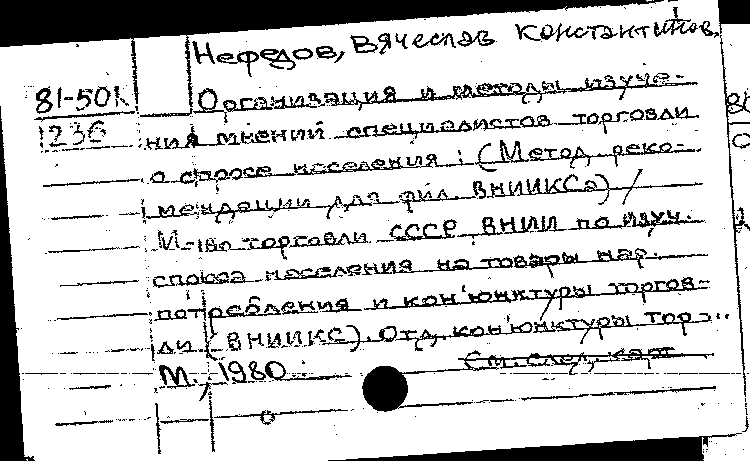 Нефедов, Вячеслав Константинов.
81-501 Организация и методы изуче-
1236 ния мнений специалистов торговли
о спросе населения : (Метод. реко-
мендации для фил. ВНИИКСа) /
М-во торговли СССР, ВНИИ по изуч.
спроса населения на товары нар.
потребления и кон'юнктуры торгов-
ли (ВНИИКС). Отд. кон'юнктуры торг..
М., 1980
См. след. карт